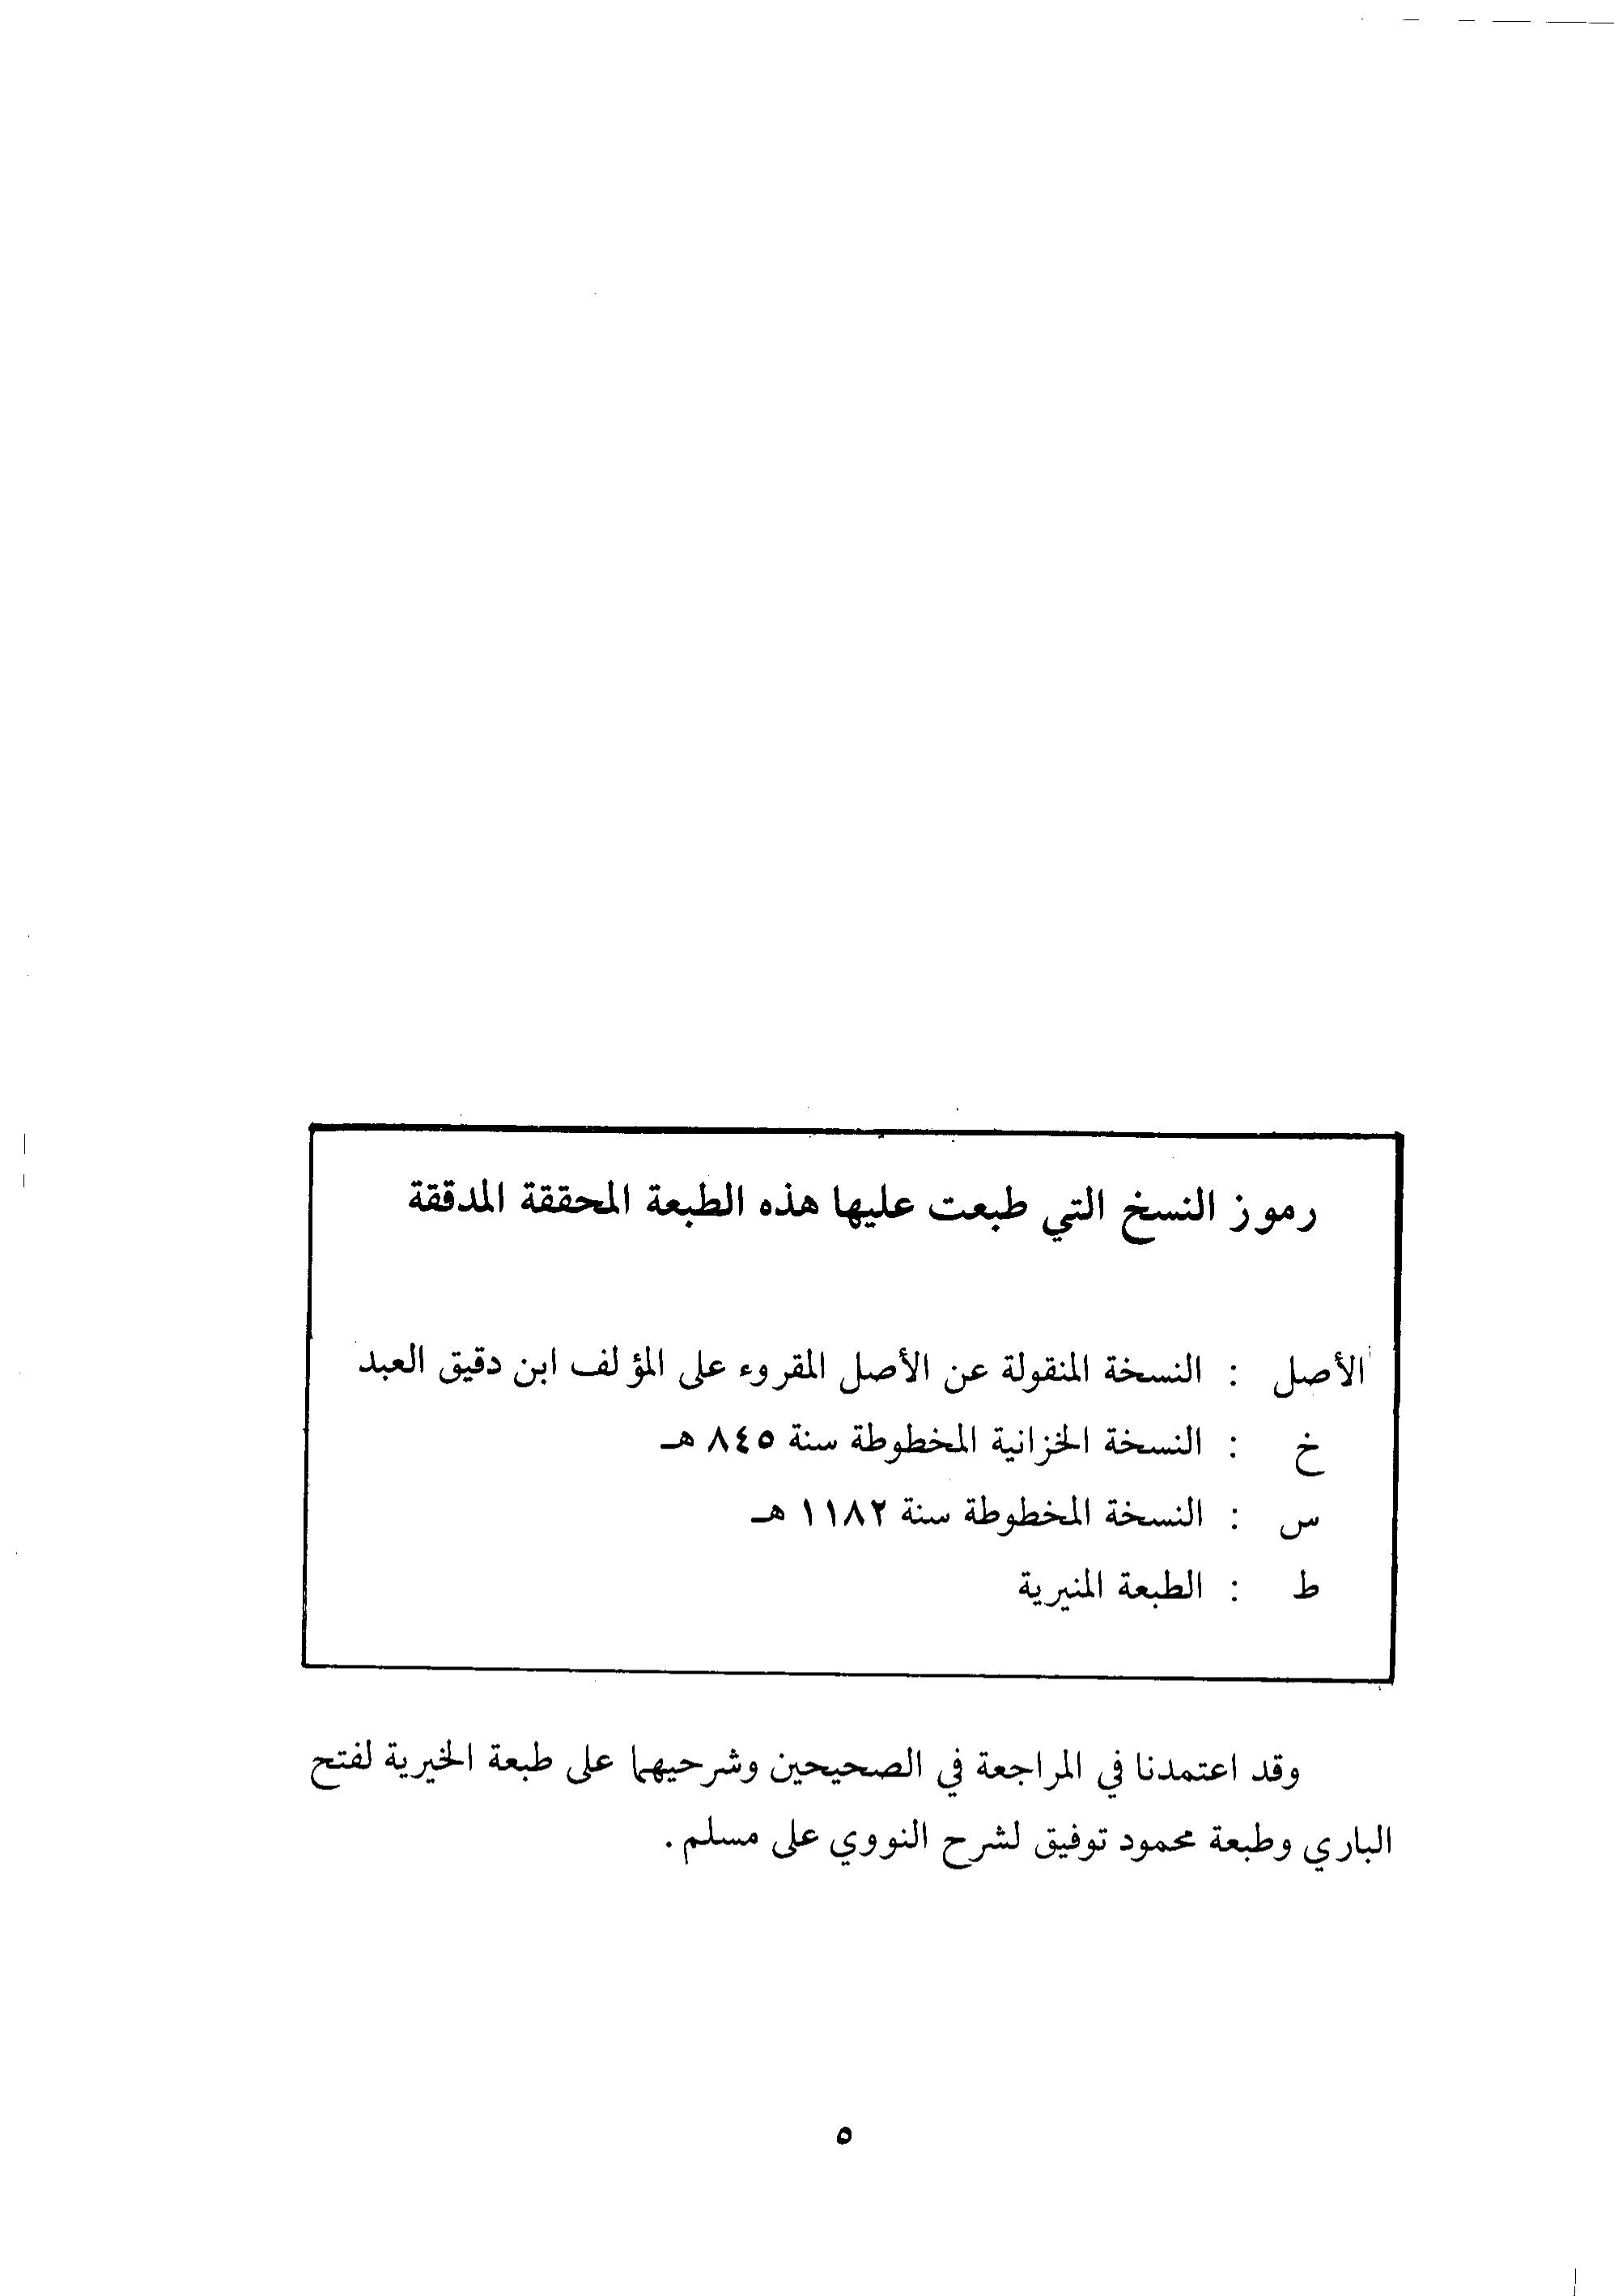 رموز النسخ التي طبعت عليها هذه الطبعة المحققة المدققة
الأصل : النسخة المنقولة عن الأصل المقروء على المؤلف ابن دقيق العبد
خ : النسخة الخزانية المخطوطة سنة ٨٤٥ هـ
س : النسخة المخطوطة سنة ١١٨٢ هـ
ط : الطبعة المنيرية
وقد اعتمدنا في المراجعة في الصحيحين وشرحيهما على طبعة الخيرية لفتح
الباري وطبعة محمود توفيق لشرح النووي على مسلم .
٥